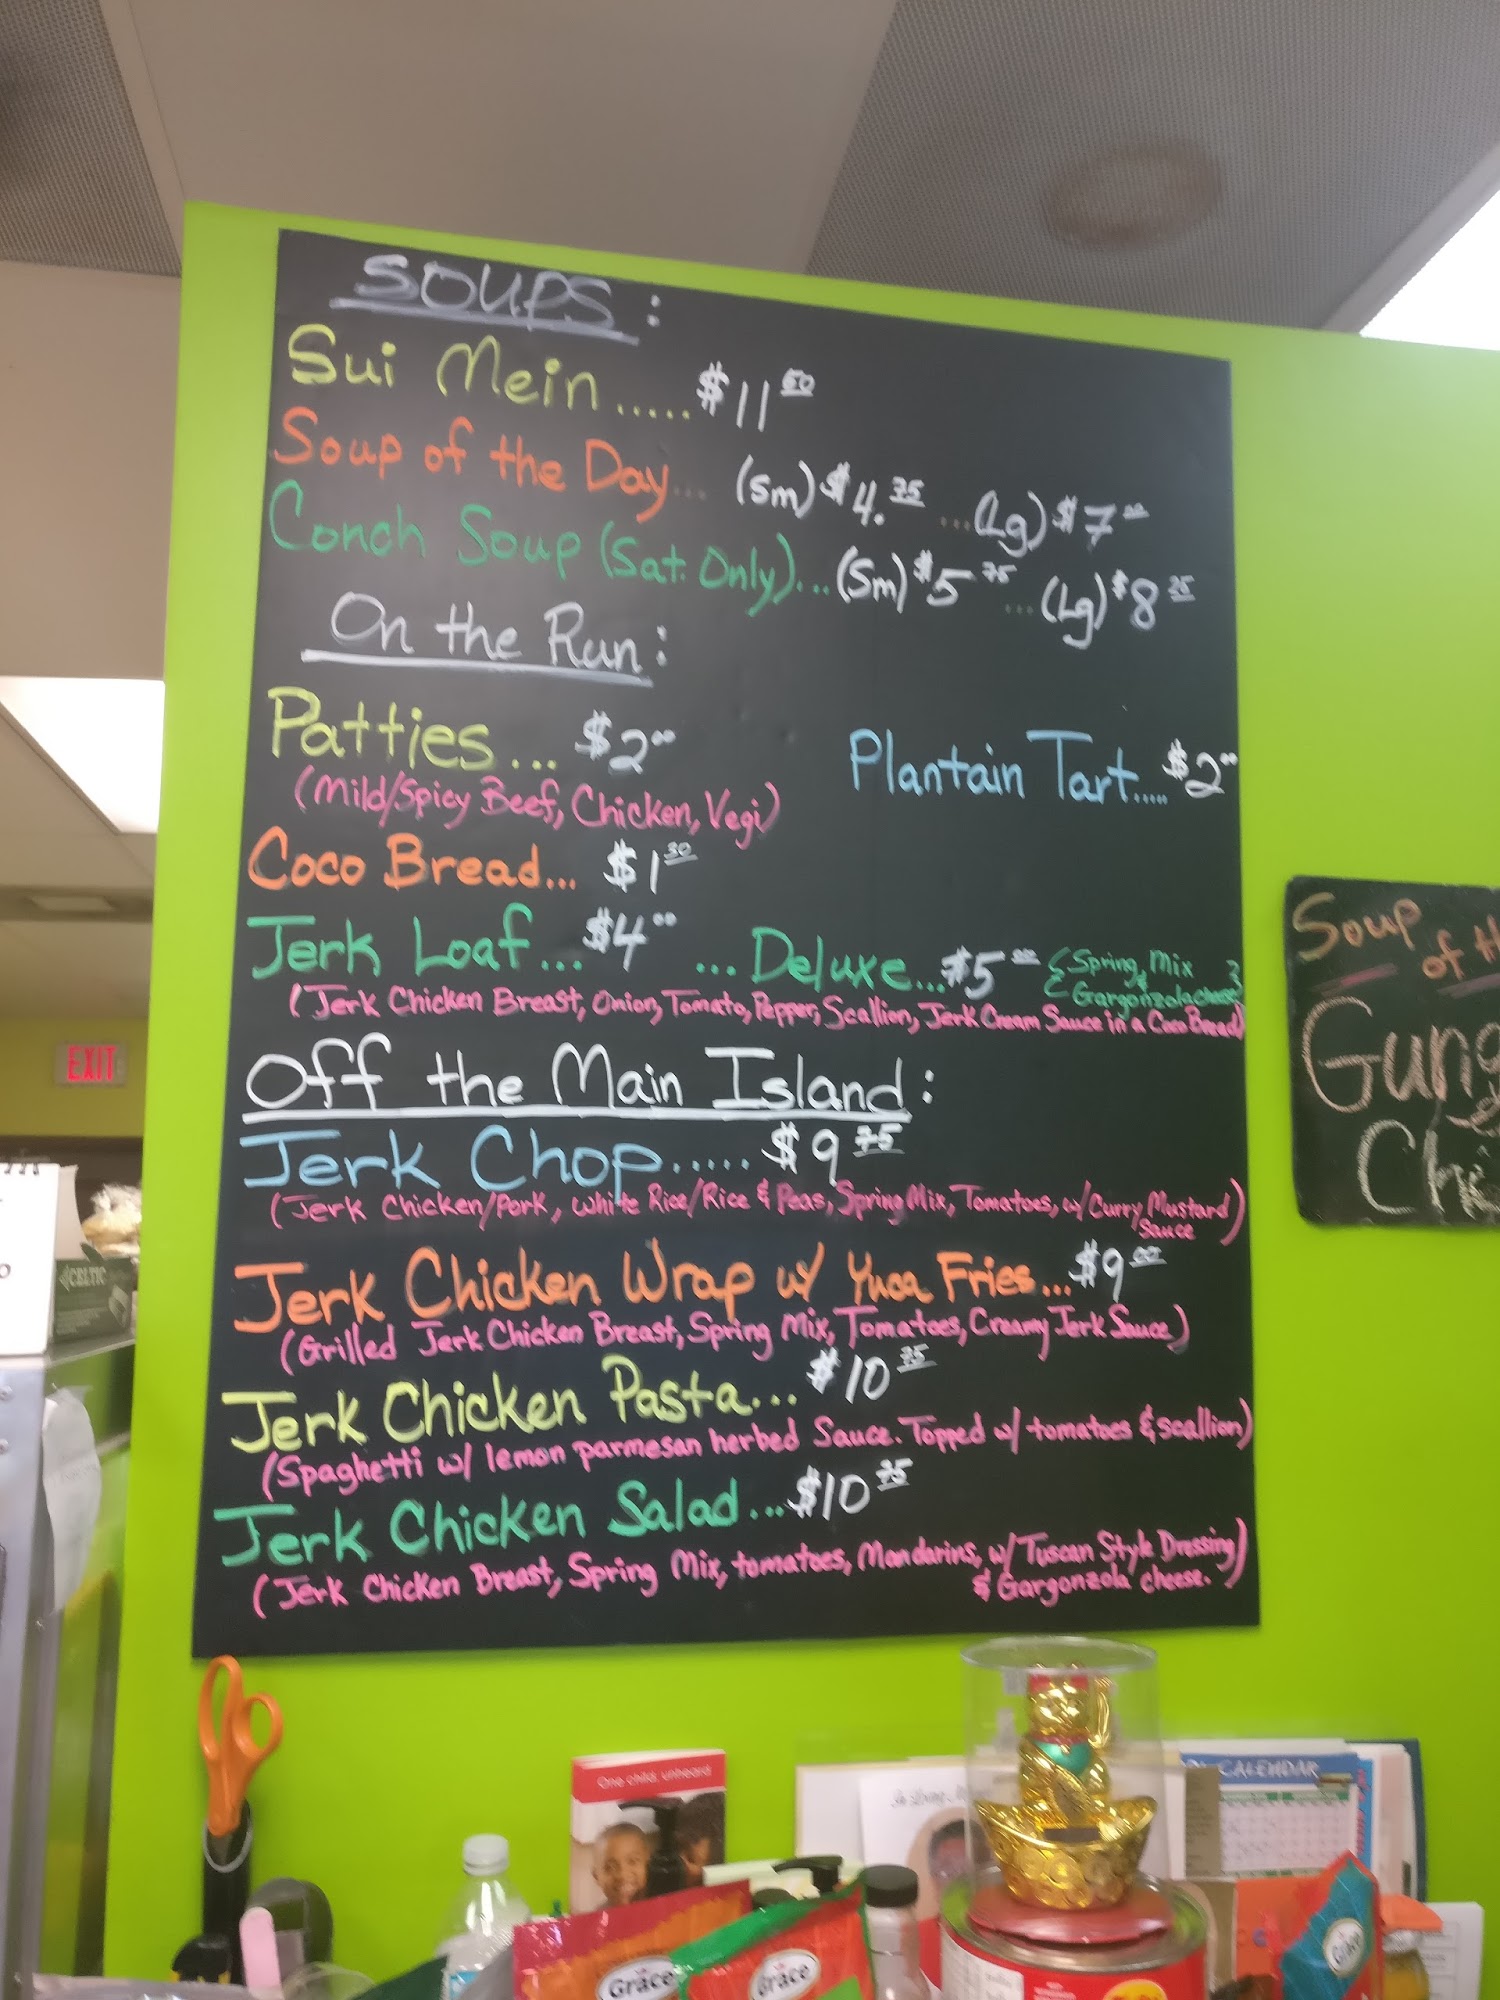 SOUPS:
Sui Mein ..... $11 50
Soup of the Day... (Sm) $4.75 ...(Lg) $7 00
Conch Soup (Sat. Only)...(Sm) $5 75 ...(Lg) $8 25
On the Run:
Patties... $2 00
(Mild/Spicy Beef, Chicken, Vegi)
Plantain Tart..... $2 00
Coco Bread... $1 50
Jerk Loaf... $4 00 ...Deluxe... $5 00 {Spring Mix
Gargonzola cheese}
(Jerk Chicken Breast, Onion, Tomato, Pepper, Scallion, Jerk Cream Sauce in a Coco Bread)
Off the Main Island:
Jerk Chop..... $9 75
(Jerk Chicken/Pork, White Rice/Rice & Peas, Spring Mix, Tomatoes, w/Curry Mustard
Sauce)
Jerk Chicken Wrap w/ Yuca Fries... $9 00
(Grilled Jerk Chicken Breast, Spring Mix, Tomatoes, Creamy Jerk Sauce)
Jerk Chicken Pasta... $10 75
(Spaghetti w/ lemon parmesan herbed Sauce. Topped w/ tomatoes & scallion)
Jerk Chicken Salad... $10 75
(Jerk Chicken Breast, Spring Mix, tomatoes, Mandarins, w/ Tuscan Style Dressing
& Gargonzola cheese.)
Soup
of
EXIT
CELTIC
One child, unheard
CALENDAR
Grace
Grace
Grace